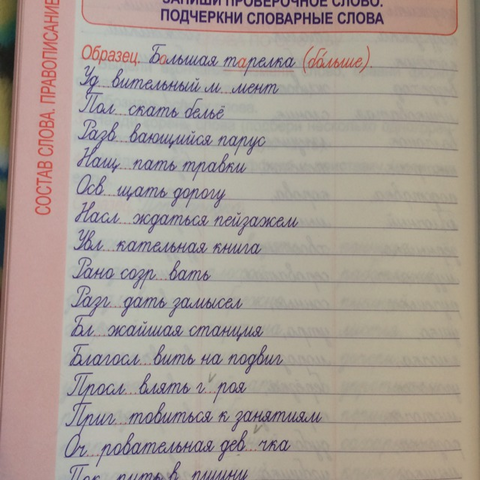 ЗАПИШИ ПРОВЕРОЧНОЕ СЛОВО.
ПОДЧЕРКНИ СЛОВАРНЫЕ СЛОВА
СОСТАВ СЛОВА. ПРАВОПИСАНИЕ
Образец. Большая тарелка (бо́льше).
Уд...вительный м...мент
Пол...скать бельё
Разв...вающийся парус
Нащ...пать травки
Осв...щать дорогу
Насл...ждаться пейзажем
Увл...кательная книга
Рано созр...вать
Разг...дать замысел
Бл...жайшая станция
Благосл...вить на подвиг
Просл...влять г...роя
Приг...товиться к занятиям
Оч...ровательная дев...чка